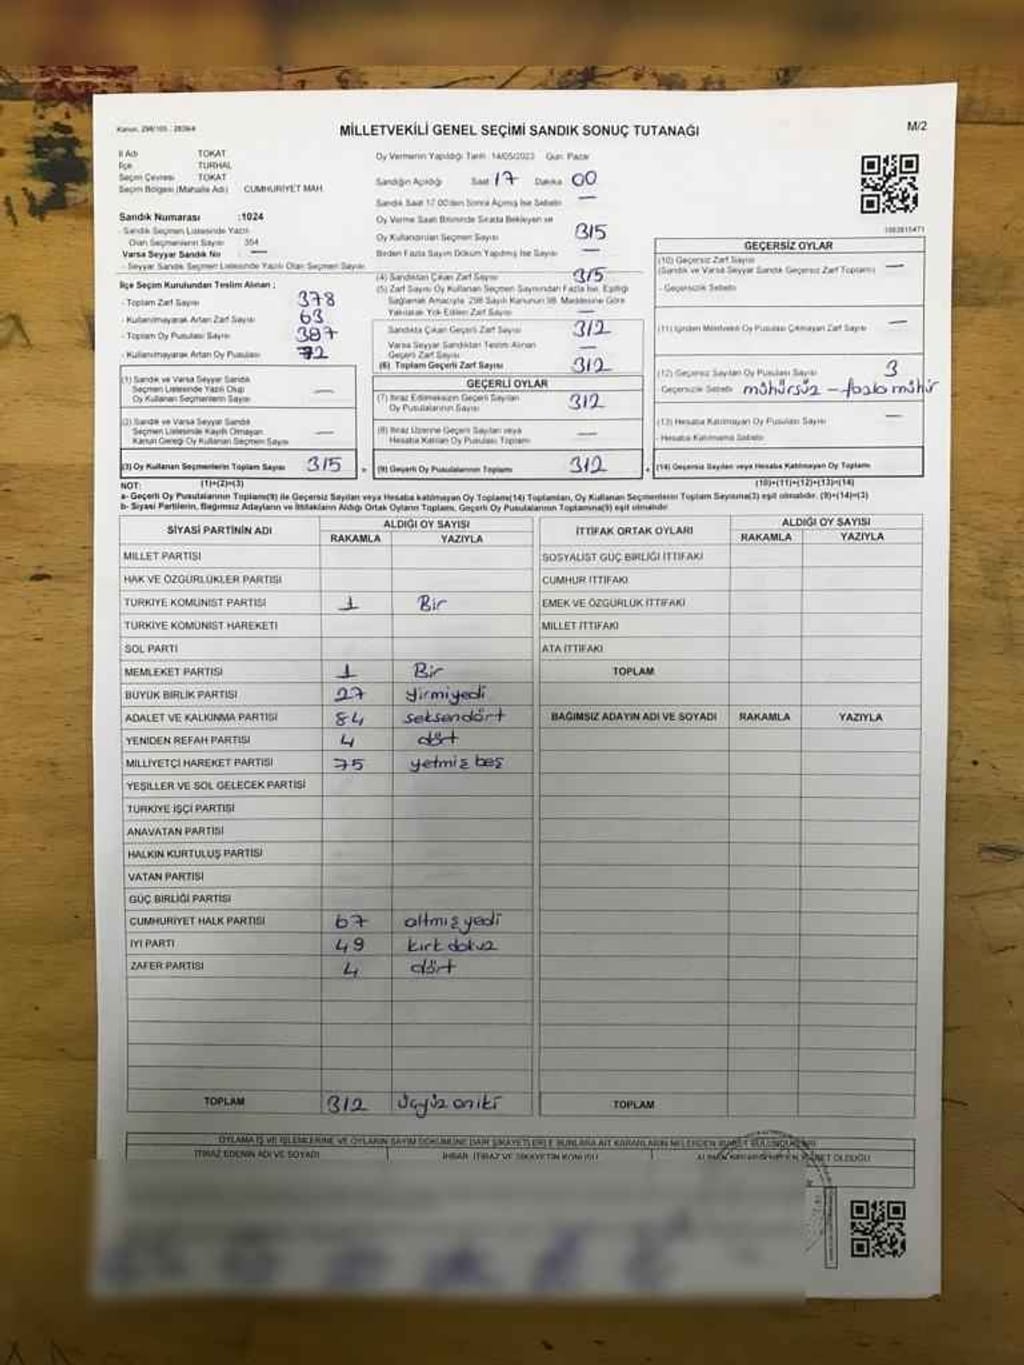 Kanun: 298/105 : 2839/4
MİLLETVEKİLİ GENEL SEÇİMİ SANDIK SONUÇ TUTANAĞI
M/2
İl Adı TOKAT
İlçe TURHAL
Seçim Çevresi TOKAT
Seçim Bölgesi (Mahalle Adı) CUMHURİYET MAH.
Sandık Numarası :1024
- Sandık Seçmen Listesinde Yazılı
Olan Seçmenlerin Sayısı 354
Varsa Seyyar Sandık No —
- Seyyar Sandık Seçmen Listesinde Yazılı Olan Seçmen Sayısı
İlçe Seçim Kurulundan Teslim Alınan ;
- Toplam Zarf Sayısı 378
- Kullanılmayarak Artan Zarf Sayısı 63
- Toplam Oy Pusulası Sayısı 387
- Kullanılmayarak Artan Oy Pusulası 72
(1) Sandık ve Varsa Seyyar Sandık
Seçmen Listesinde Yazılı Olup
Oy Kullanan Seçmenlerin Sayısı —
(2) Sandık ve Varsa Seyyar Sandık
Seçmen Listesinde Kayıtlı Olmayan
Kanun Gereği Oy Kullanan Seçmen Sayısı —
(3) Oy Kullanan Seçmenlerin Toplam Sayısı 315
(1)+(2)=(3)
Oy Vermenin Yapıldığı Tarih 14/05/2023 Gün: Pazar
Sandığın Açıldığı Saat 17 Dakika 00
Sandık Saat 17.00'den Sonra Açılmış İse Sebebi —
Oy Verme Saati Bitiminde Sırada Bekleyen ve
Oy Kullandırılan Seçmen Sayısı 315
Birden Fazla Sayım Döküm Yapılmış İse Sayısı —
(4) Sandıktan Çıkan Zarf Sayısı 315
(5) Zarf Sayısı Oy Kullanan Seçmen Sayısından Fazla İse, Eşitliği
Sağlamak Amacıyla 298 Sayılı Kanunun 98. Maddesine Göre
Yakılarak Yok Edilen Zarf Sayısı —
Sandıkta Çıkan Geçerli Zarf Sayısı 312
Varsa Seyyar Sandıktan Teslim Alınan
Geçerli Zarf Sayısı —
(6) Toplam Geçerli Zarf Sayısı 312
GEÇERLİ OYLAR
(7) İtiraz Edilmeksizin Geçerli Sayılan
Oy Pusulalarının Sayısı 312
(8) İtiraz Üzerine Geçerli Sayılan veya
Hesaba Katılan Oy Pusulası Toplamı —
(9) Geçerli Oy Pusulalarının Toplamı 312
GEÇERSİZ OYLAR
(10) Geçersiz Zarf Sayısı
(Sandık ve Varsa Seyyar Sandık Geçersiz Zarf Toplamı) —
- Geçersizlik Sebebi
(11) İçinden Milletvekili Oy Pusulası Çıkmayan Zarf Sayısı —
(12) Geçersiz Sayılan Oy Pusulası Sayısı 3
Geçersizlik Sebebi mühürsüz - fazla mühür
(13) Hesaba Katılmayan Oy Pusulası Sayısı
- Hesaba Katılmama Sebebi
(14) Geçersiz Sayılan veya Hesaba Katılmayan Oy Toplamı
(10)+(11)+(12)+(13)=(14)
NOT:
a- Geçerli Oy Pusulalarının Toplamı(9) ile Geçersiz Sayılan veya Hesaba katılmayan Oy Toplamı(14) Toplamları, Oy Kullanan Seçmenlerin Toplam Sayısına(3) eşit olmalıdır. (9)+(14)=(3)
b- Siyasi Partilerin, Bağımsız Adayların ve İttifakların Aldığı Ortak Oyların Toplamı, Geçerli Oy Pusulalarının Toplamına(9) eşit olmalıdır.
SİYASİ PARTİNİN ADI ALDIĞI OY SAYISI
RAKAMLA YAZIYLA
MİLLET PARTİSİ
HAK VE ÖZGÜRLÜKLER PARTİSİ
TÜRKİYE KOMÜNİST PARTİSİ 1 Bir
TÜRKİYE KOMÜNİST HAREKETİ
SOL PARTİ
MEMLEKET PARTİSİ 1 Bir
BÜYÜK BİRLİK PARTİSİ 27 yirmiyedi
ADALET VE KALKINMA PARTİSİ 84 seksendört
YENİDEN REFAH PARTİSİ 4 dört
MİLLİYETÇİ HAREKET PARTİSİ 75 yetmiş beş
YEŞİLLER VE SOL GELECEK PARTİSİ
TÜRKİYE İŞÇİ PARTİSİ
ANAVATAN PARTİSİ
HALKIN KURTULUŞ PARTİSİ
VATAN PARTİSİ
GÜÇ BİRLİĞİ PARTİSİ
CUMHURİYET HALK PARTİSİ 67 altmış yedi
İYİ PARTİ 49 kırk dokuz
ZAFER PARTİSİ 4 dört
TOPLAM 312 üçyüz oniki
İTTİFAK ORTAK OYLARI ALDIĞI OY SAYISI
RAKAMLA YAZIYLA
SOSYALİST GÜÇ BİRLİĞİ İTTİFAKI
CUMHUR İTTİFAKI
EMEK VE ÖZGÜRLÜK İTTİFAKI
MİLLET İTTİFAKI
ATA İTTİFAKI
TOPLAM
BAĞIMSIZ ADAYIN ADI VE SOYADI RAKAMLA YAZIYLA
TOPLAM
OYLAMA İŞ VE İŞLEMLERİNE VE OYLARIN SAYIM DÖKÜMÜNE DAİR ŞİKAYETLERLE BUNLARA AİT KARARLARIN NELERDEN İBARET BULUNDUKLARI
İTİRAZ EDENİN ADI VE SOYADI İHBAR, İTİRAZ VE ŞİKAYETİN KONUSU